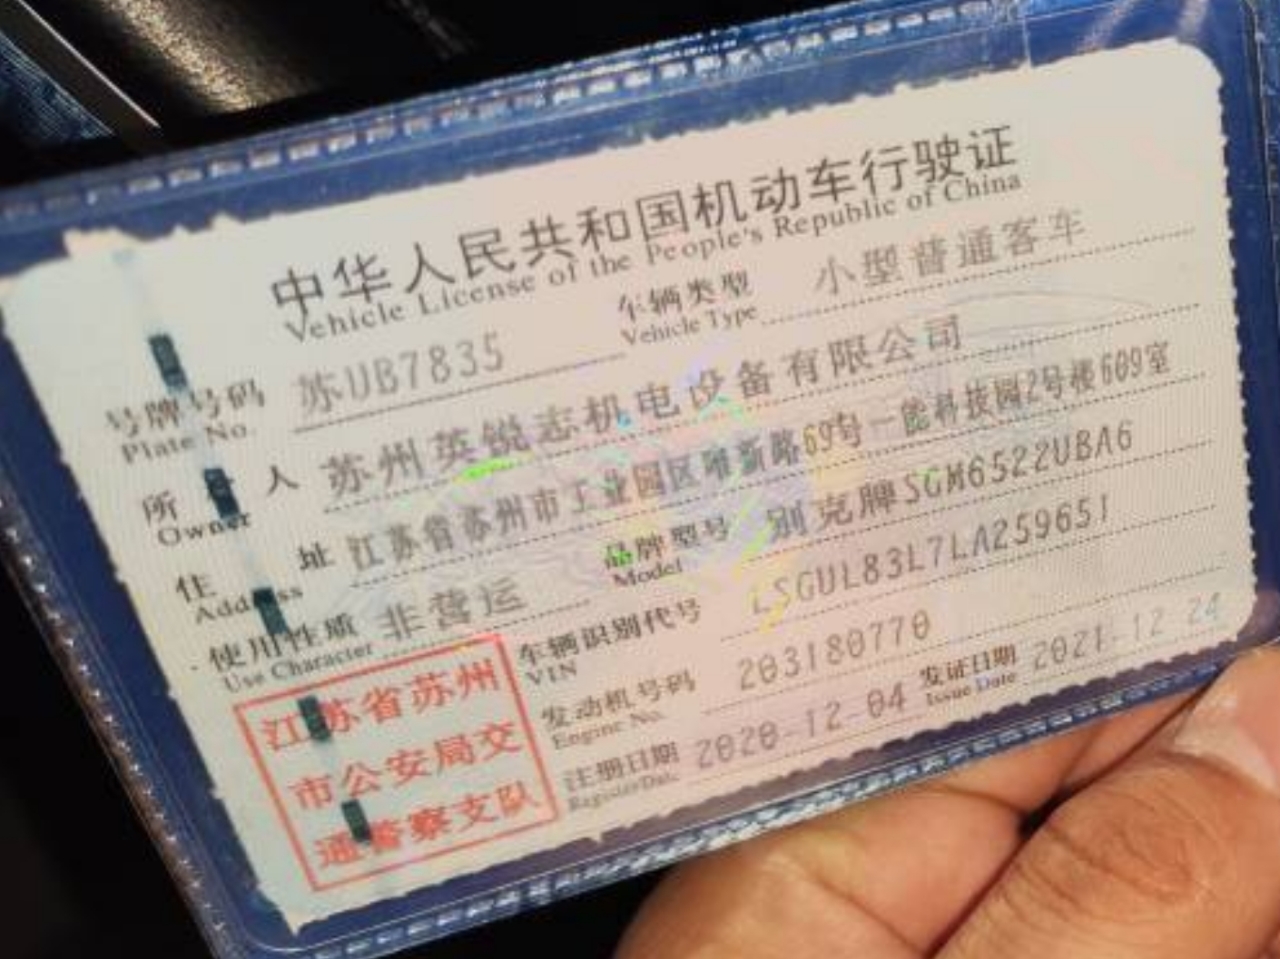 中华人民共和国机动车行驶证
Vehicle License of the People's Republic of China
号牌号码 苏UB7835 车辆类型 小型普通客车
Plate No. Vehicle Type
所 人 苏州英锐志机电设备有限公司
Owner
住 址 江苏省苏州市工业园区唯新路69号一能科技园2号楼609室
Address
使用性质 非营运 品牌型号 别克牌SGM6522UBA6
Use Character Model
车辆识别代号 LSGUL83L7LA259651
VIN
发动机号码 203180770
Engine No.
注册日期 2020-12-04 发证日期 2021-12-24
Register Date Issue Date
江苏省苏州
市公安局交
通警察支队